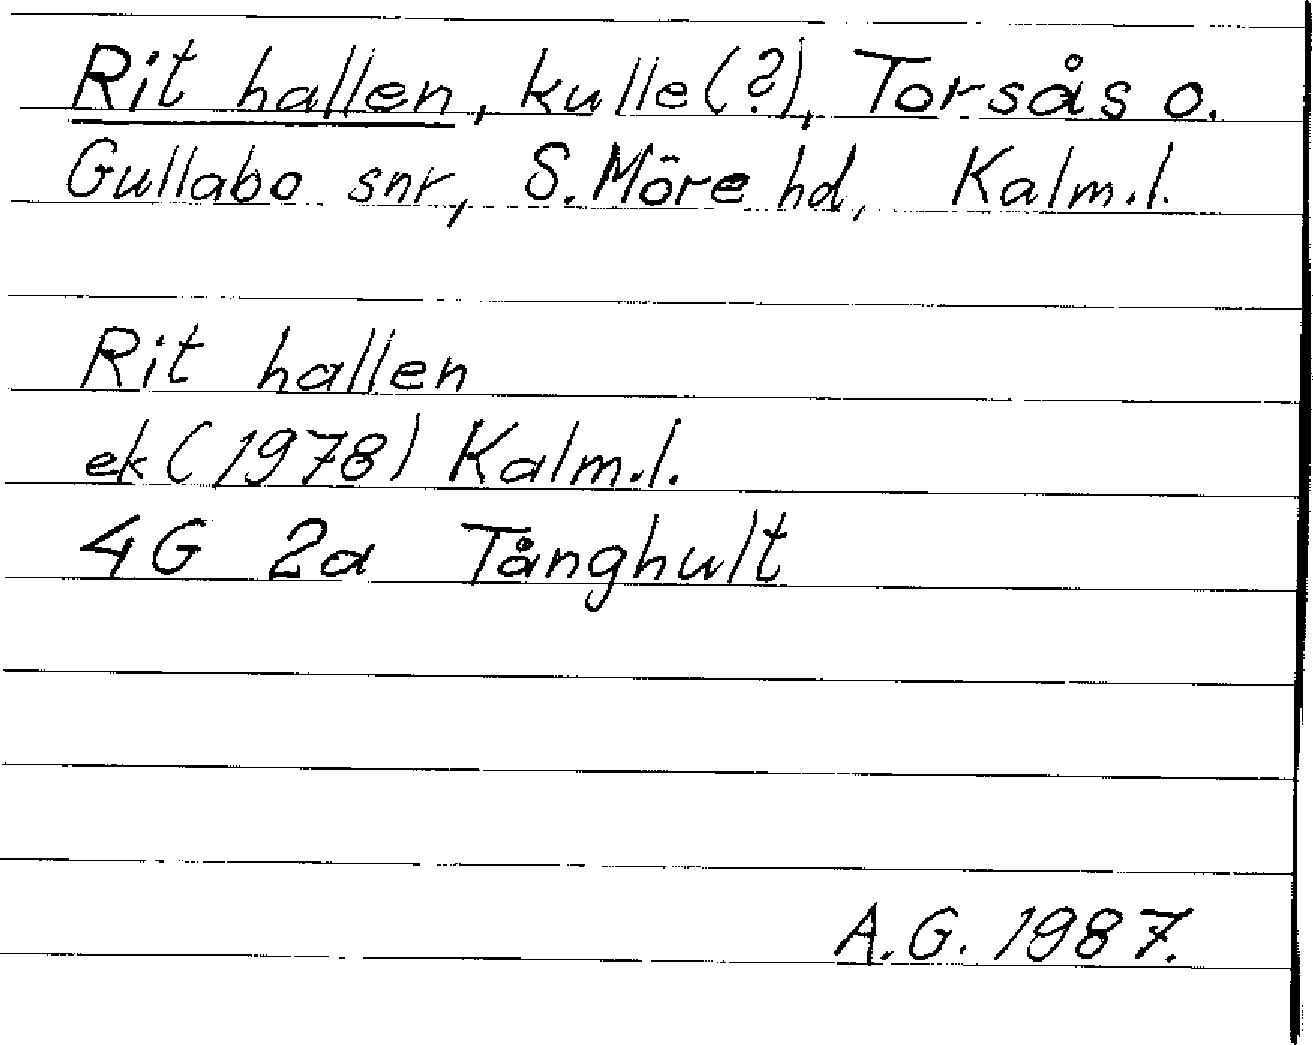 Rit hallen, kulle(?), Torsås o.
Gullabo snr, S. Möre hd, Kalm.l.
Rit hallen
ek (1978) Kalm.l.
4G 2a Tånghult
A.G. 1987.